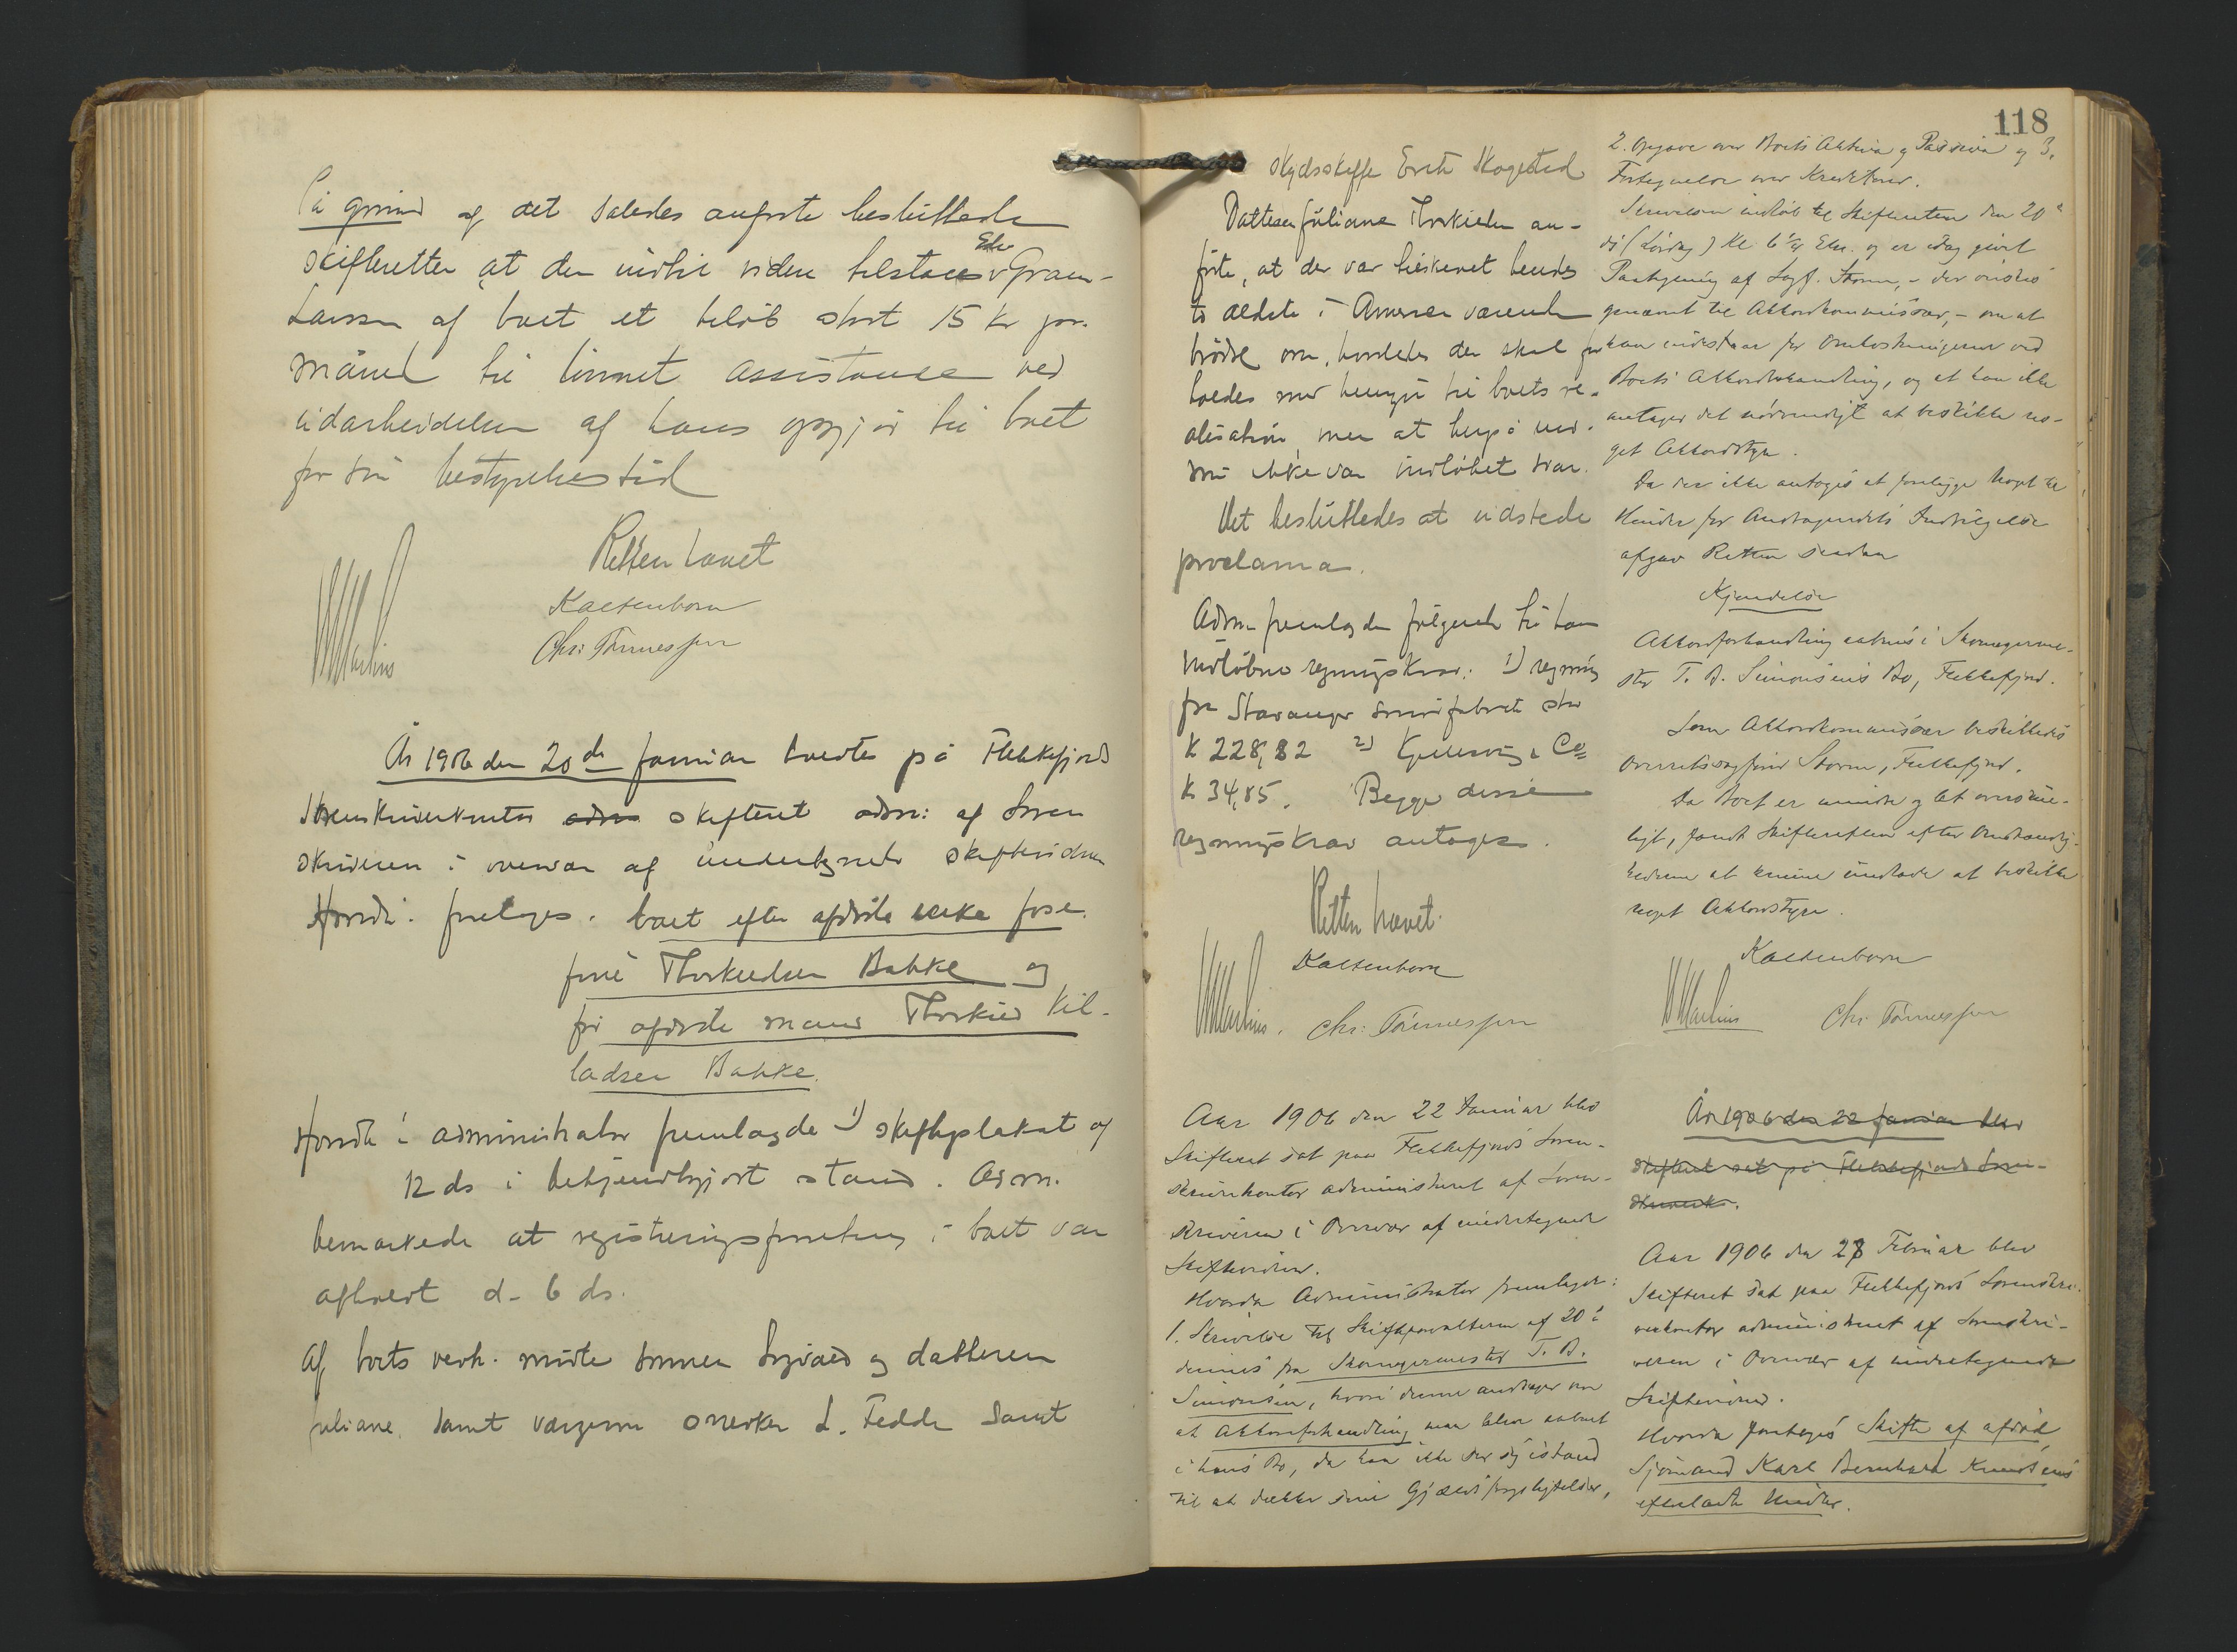 På grund af det således anførte besluttede
skifteretten, at der indtil videre tilståes Edv Gram-
Larsen af boet et beløb stort 15 kr pr.
måned til lønnet assistance ved
udarbeidelsen af hans opgjør til boet
for sin bestyrelsestid
Retten hævet
Kaltenborn
Chr: Tønnessen
År 1906 den 20de januar holdtes på Flekkefjords
Sorenskriverkontor skifteret adm: af Soren
skriveren i overvær af undertegnede skiftevidner
Hvorda: foretoges: boet efter afdøde enke Jose
fine Thorkildsen Bakke og
før afdøde mand Thorkild Kil-
ladsen Bakke.
Hvorda administrator fremlagde 1) skifteplakat af
12 ds i bekjendtgjort stand. Adm.
bemærkede at registreringsforretning i boet var
afholdt d. 6 ds.
Af boets vedk. mødte sønnen Sigvald og datteren
Juliane, samt værgerne snedker L. Fedde samt
118
skydsskaffer Skogestad
Datteren Juliane Thorkildsen an-
førte, at der var tilskrevet hendes
to ældste i Amerika værende
brødre om, hvorledes der skal for
holdes med hensyn til boets re-
alisation, men at herpå end-
nu ikke var indløbet svar.
Det besluttedes at udstede
proclama.
Adm fremlagde følgende til ham
indløbne regningskrav: 1) regning
fra Stavanger fabrik stor
K 228,82 2) & Co
K 34,85. Begge disse
regningskrav antoges.
Retten hævet.
Kaltenborn
Chr: Tønnessen
Aar 1906 den 22 Januar blev
Skifteret sat paa Flekkefjords Soren-
skriverkontor administreret af Soren-
skriveren i Overvær af undertegnede
Skiftevidner.
Hvorda Administrator fremlagde:
1. Skrivelse til Skifteforvalteren af 20 i
dennes fra Skomagermester T. B.
Simonsen, hvori denne andrager om
at Akkordforhandling maa blive aabnet
i hans Bo, da han ikke ser sig istand
til at dække sine Gjældsforpligtelser,
2. Opgave over Boets Aktiva og Passiva og 3.
Fortegnelse over Kreditorer.
Skrivelsen indløb til Skifteretten den 20d
ds (Lørdag) Kl 6 1/4 Efm. og er idag givet
Paategning af Sagf. Storm, - der ønskes
opnævnt til Akkordkommissær, - om at
han indestaar for Omkostningerne ved
Boets Akkordbehandling, og at han ikke
antager det nødvendigt at beskikke no-
get Akkordstyre.
Da der ikke antoges at foreligge noget til
Hinder for Andragendets Indvilgelse
afgav Retten saadan
Kjendelse
Akkordforhandling aabnes i Skomagerme-
ster T. B. Simonsens Bo, Flekkefjord.
Som Akkordkommissær beskikkedes
Overretssagfører Storm, Flekkefjord.
Da Boet er mindre og let oversue-
ligt, fandt Skifteretten efter Omstændig-
hederne at kunne undlade at beskikke
noget Akkordstyre.
Kaltenborn
Chr: Tønnessen
År 1906 den 22 januar blev
skifteret sat på Flekkefjords Soren-
Aar 1906 den 28 Februar blev
Skifteret sat paa Flekkefjords Sorenskri-
verkontor administreret af Sorenskri-
veren i Overvær af undertegnede
Skiftevidner.
Hvorda foretoges Skifte af afdød
Sjømand Karl Bernhard Knudsens
efterladte Midler.